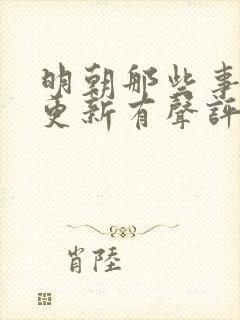 明朝那些事
更新有聲評
肖陸